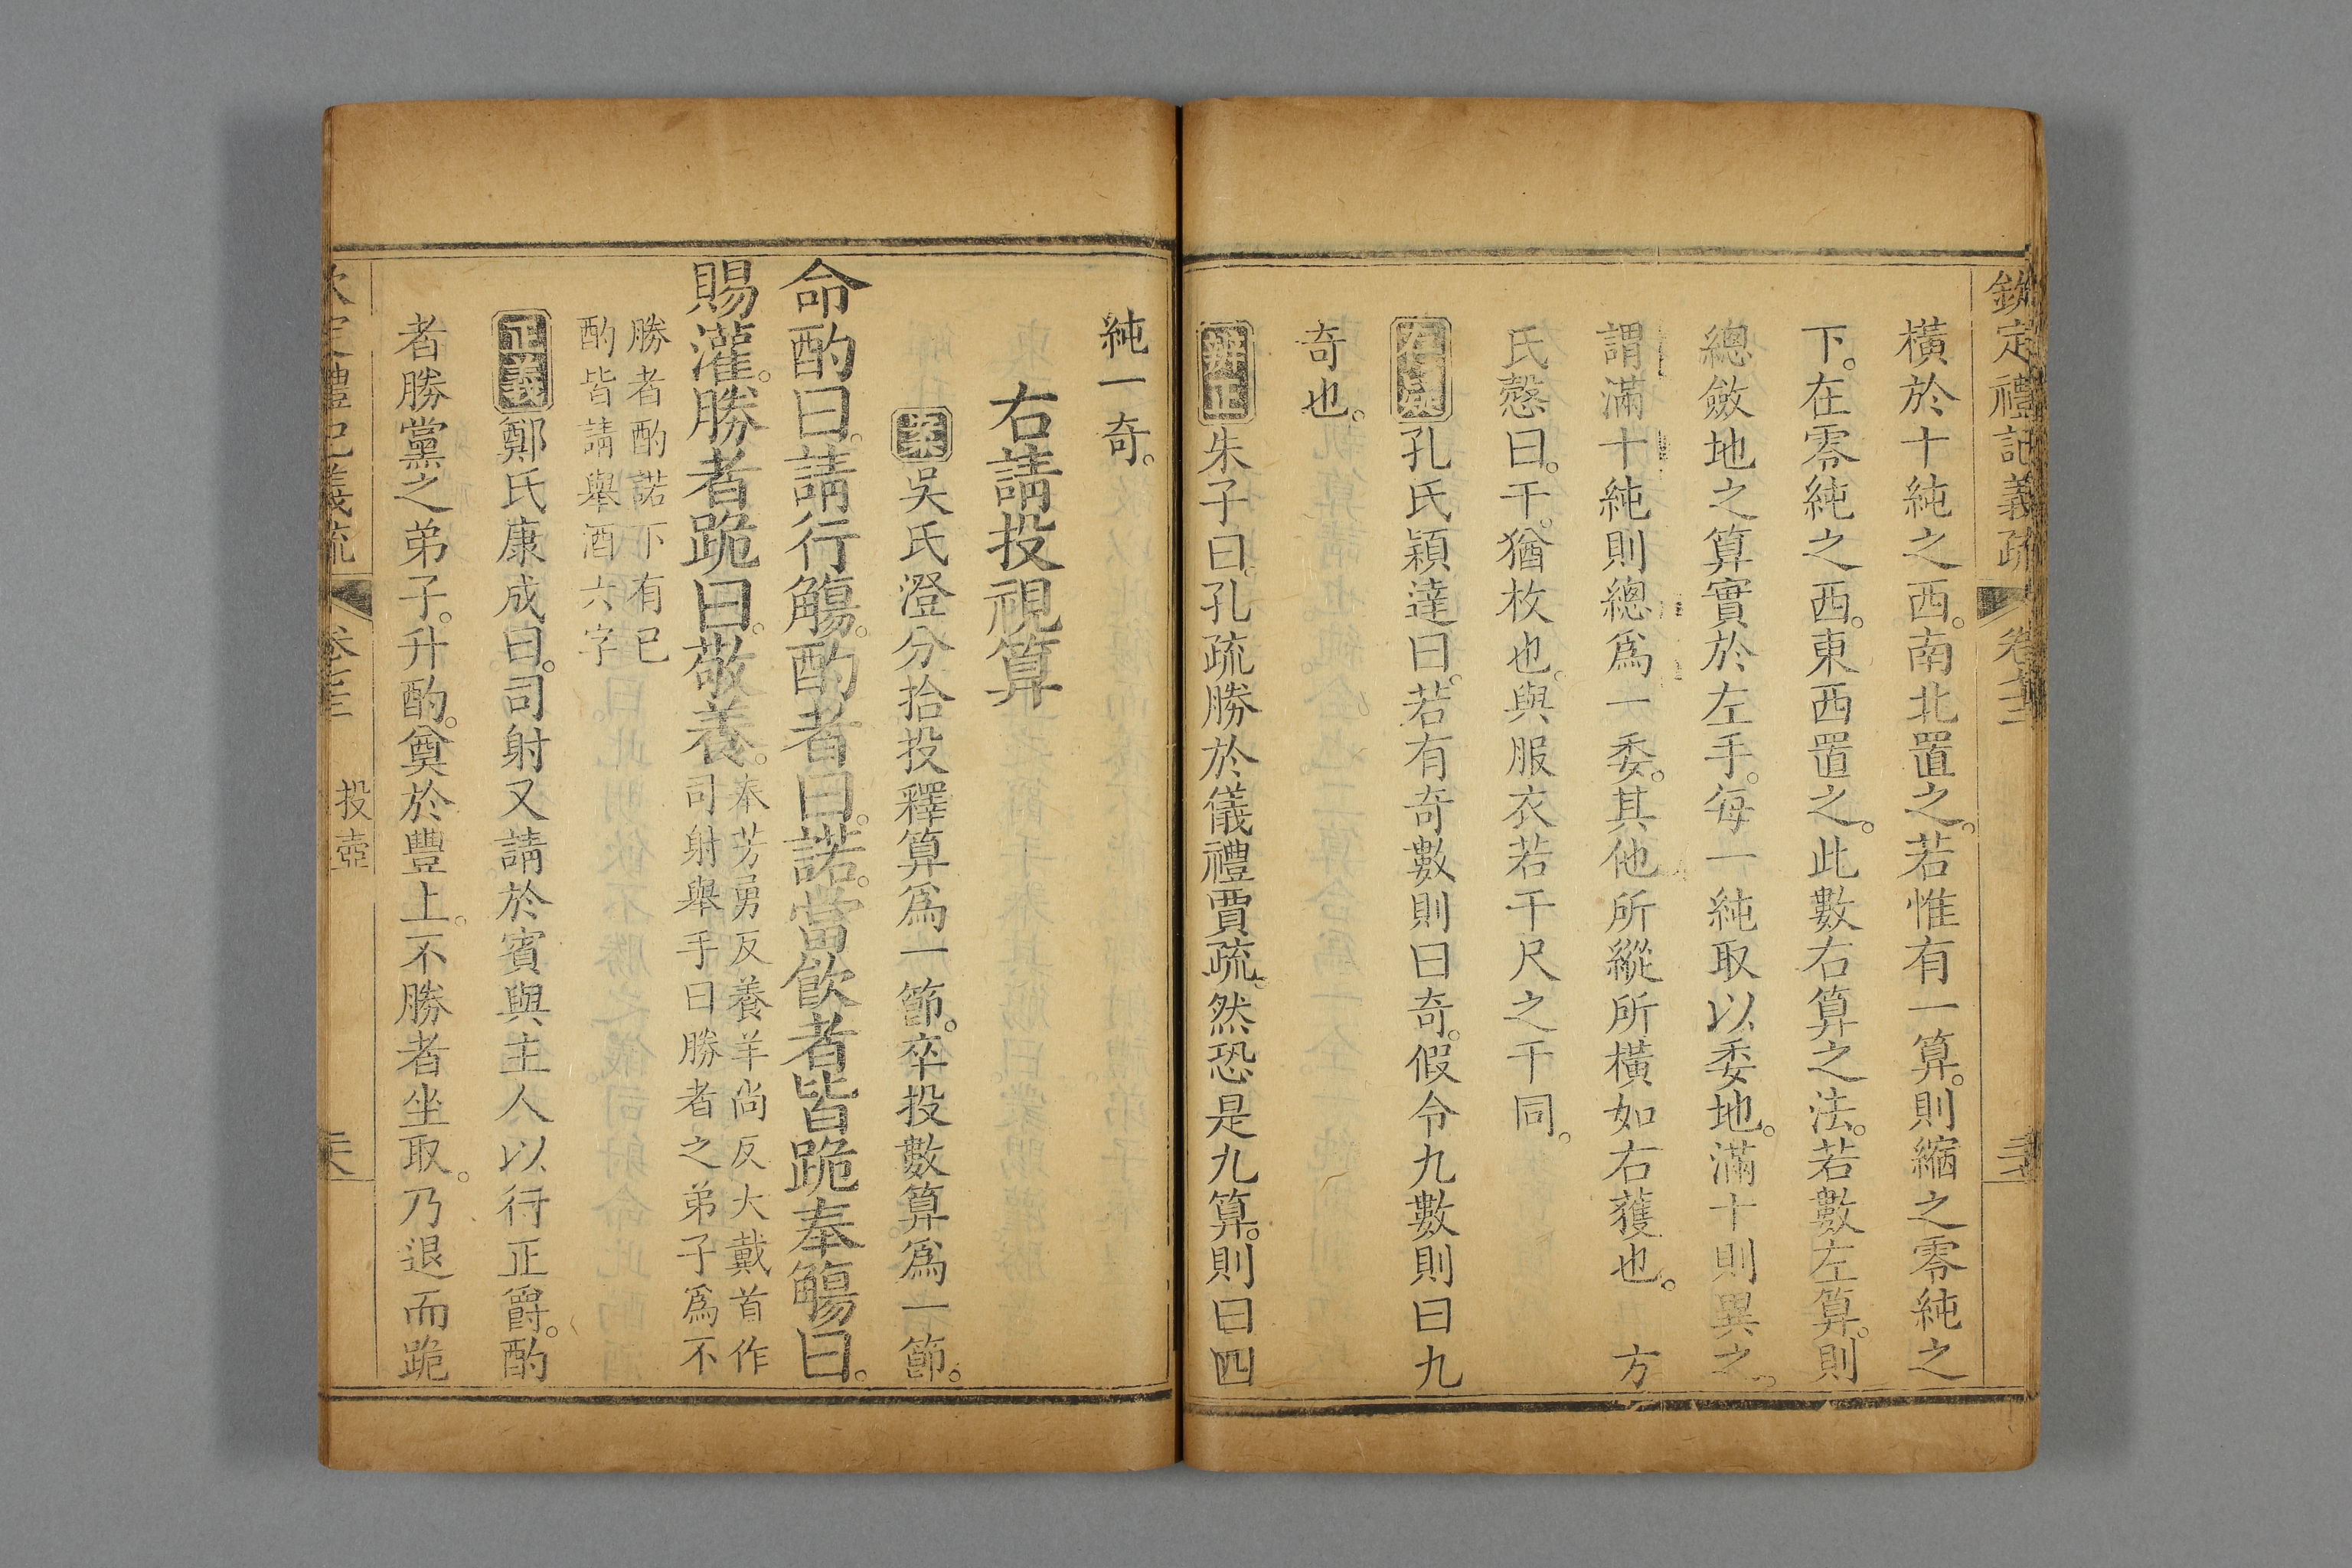 欽定禮記義疏
橫於十純之西。南北置之。若惟有一算。則縮之零純之
下。在零純之西。東西置之。此數右算之法。若數左算。則
總斂地之算實於左手。每一純取以委地。滿十則異之。
謂滿十純則總爲一委。其他所縱所橫如右獲也。 方
氏慤曰。干。猶枚也。與服衣若干尺之干同。
存疑 孔氏穎達曰。若有奇數則曰奇。假令九數則曰九
奇也。
辨正 朱子曰。孔疏勝於儀禮賈疏。然恐是九算。則曰四
純一奇。
右請投視算
案 吳氏澄分拾投釋算爲一節。卒投數算爲一節。
命酌曰。請行觴。酌者曰。諾。當飲者皆跪奉觴曰。
賜灌。勝者跪曰。敬養。奉芳勇反養羊尚反大戴首作
司射舉手曰勝者之弟子爲不
勝者酌諾下有已
酌皆請舉酒六字
正義 鄭氏康成曰。司射又請於賓與主人以行正爵。酌
者勝黨之弟子。升酌。奠於豐上。不勝者坐取。乃退而跪
定禮記義疏
投壺